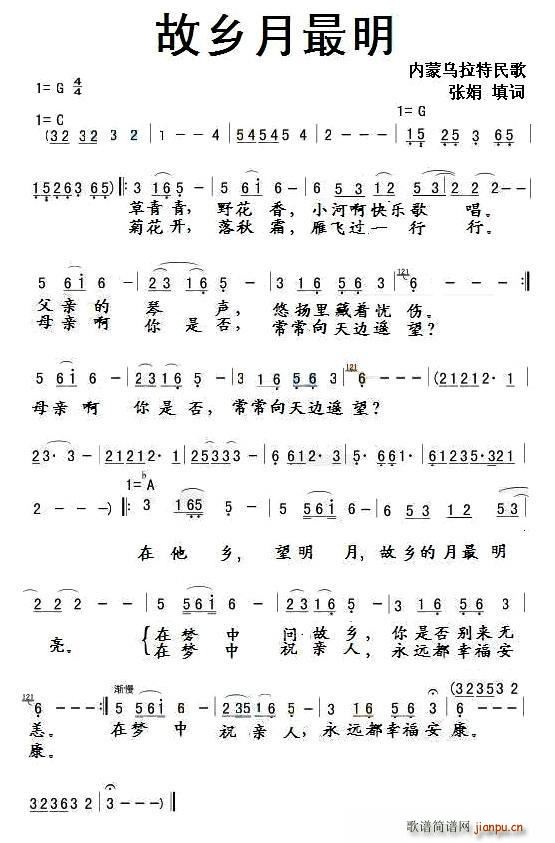 故乡月最明
内蒙乌拉特民歌
1= G 4/4
张娟 填词
1= C
1= G
(32 32 3 2 | 1 - - - | 5454 5 4 | 2 - - - | 15 25 3 65 |
15263 65) |: 3 16 5 - | 5 6i 6 - | 6 53 12 53 | 2 2 - - |
草青青，野花 香，小河啊快乐歌 唱。
菊花开，落秋 霜，雁飞过一 行 行。
5 6i 6 - | 23 16 5 - | 3 16 56 3 | 121 6 - - - |
父亲的 琴 声，悠扬里藏着忧 伤。
母亲啊 你 是 否，常常向天边遥 望？
5 6i 6 - | 23 16 5 - | 3 16 56 3 | 121 6 - - - | (21212· 1 |
母亲啊 你是否，常常向天边遥望？
23· 3 - | 21212· 1 | 25333 - | 6 612· 3 | 5· 661· | 61235·325 |
1=♭A
2 - - -) |: 3 165 5 - | 5 56i 6 - | 6 53 12 53 |
在他 乡，望明 月，故乡的月最明
2 2 - - | 5 56i 6 - | 23 16 5 - | 3 16 56 3 |
亮。 在梦 中 问故乡，你是否别来无
在梦 中 祝亲人，永远都幸福安
渐慢
(323523 2
121 6 - - - :| 5 56i 6 - | 235 16 5 - | 3 16 56 3 | 6 - - - |
恙。 在梦中 祝亲人，永远都幸福安康。
康。
323263 3 2 | 3 - - -) ||
歌谱简谱网
jianpu.cn